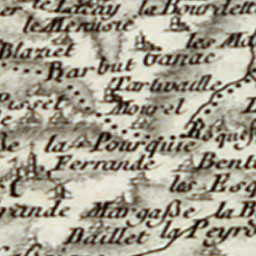 la Bourdett
le Menusie
Blaziet
les Ma
Barbut
Ganae
Tartuvaille
Pisset
Mourel
la Pourquie
Roquef
Ferrande
Bent
les Esq
rande
Margaße
la B
Baillet
la Peyro